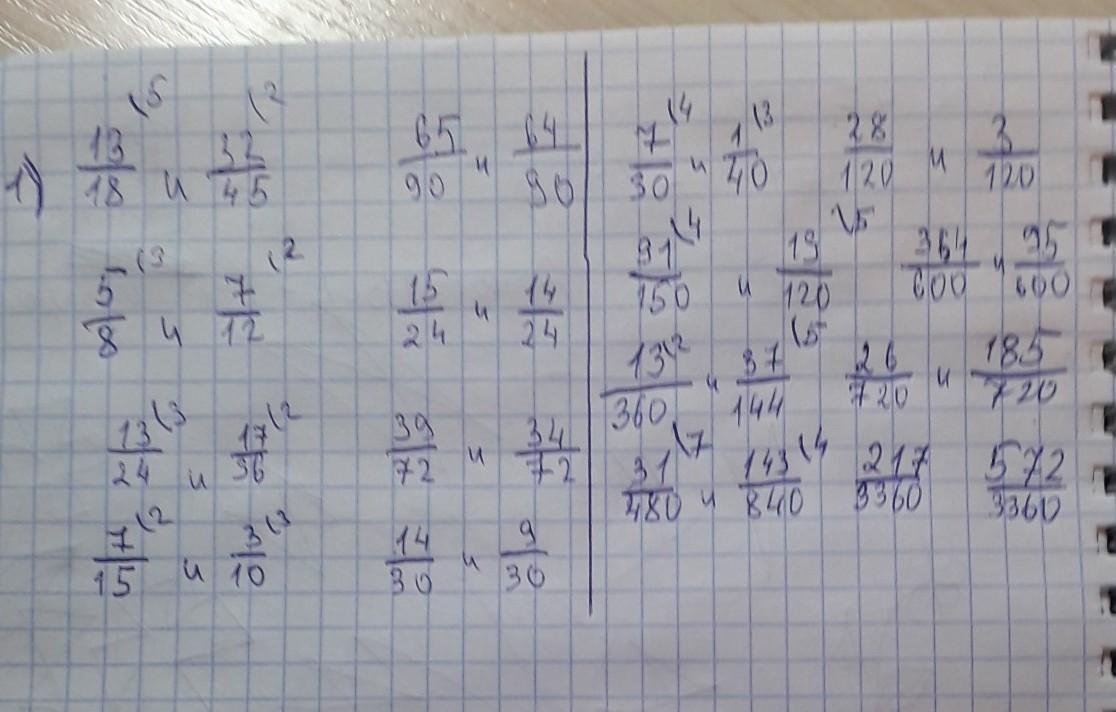 1) 13/18 (5 и 32/45 (2 65/90 и 64/90
5/8 (3 и 7/12 (2 15/24 и 14/24
13/24 (3 и 17/36 (2 39/72 и 34/72
7/15 (2 и 3/10 (3 14/30 и 9/30
7/30 (4 и 1/40 (3 28/120 и 3/120
91/150 (4 и 19/120 (5 364/600 и 95/600
13/360 (2 и 37/144 (5 26/720 и 185/720
31/480 (7 и 143/840 (4 217/3360 572/3360